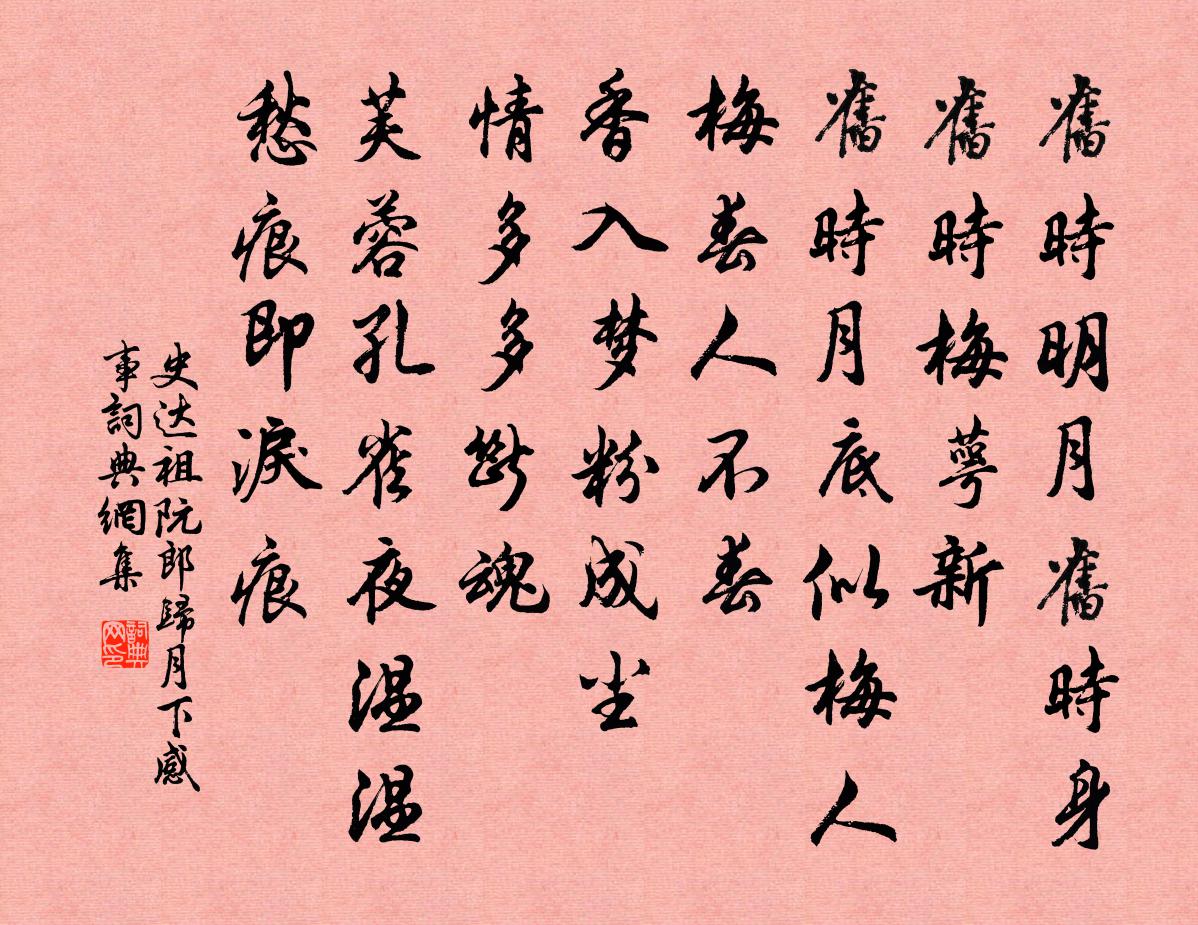 舊時明月舊時身
舊時梅萼新
舊時月底似梅人
梅春人不春
香入梦粉成尘
情多多斷魂
芙蓉孔雀夜温温
愁痕即淚痕
史达祖阮郎歸月下感
事詞典網集
詞典网印